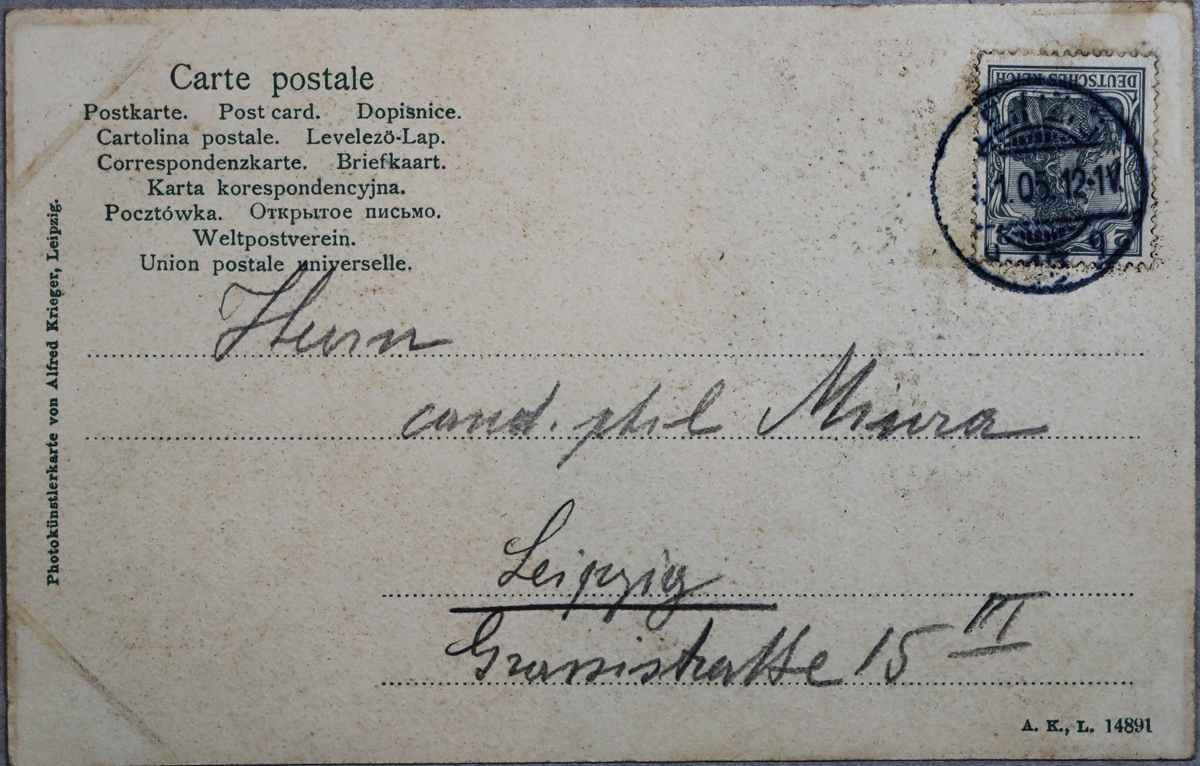 Carte postale
Postkarte. Post card. Dopisnice.
Cartolina postale. Levelező-Lap.
Correspondenzkarte. Briefkaart.
Karta korespondencyjna.
Pocztówka. Открытое письмо.
Weltpostverein.
Union postale universelle.
DEUTSCHES REICH
1.05.12-1V.
2 2
Herrn
cand. phil Miura
Leipzig
Grassistraße 15 III
Photokünstlerkarte von Alfred Krieger, Leipzig.
A. K., L. 14891